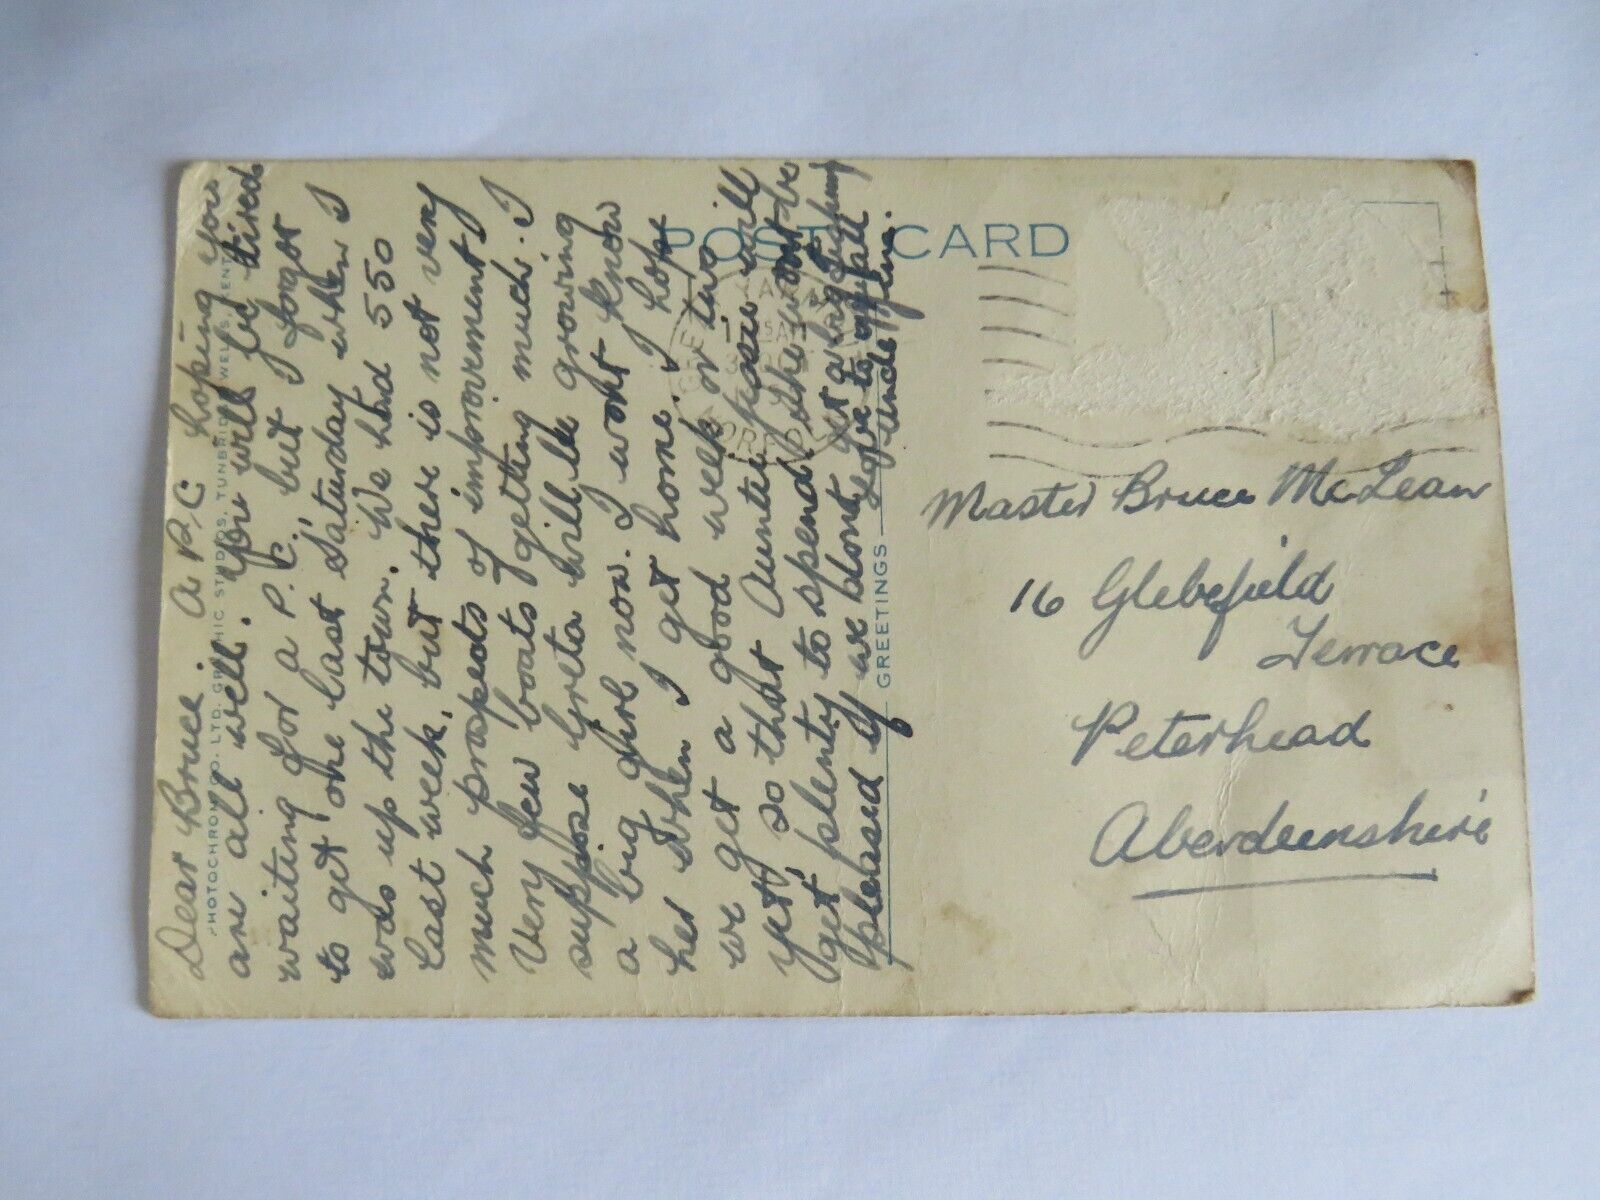 POST CARD
Dear Bruce. A P.C hoping you
are all well. You will be tired
waiting for a P.C. but I forgot
to get one last Saturday when I
was up the town. We had 550
last week, but there is not very
much prospects of improvement
Very few boats getting much. I
suppose Greta will be growing
a big girl now. I wont know
her when I get home. I hope
we get a good week or two
yet, so that Auntie Jessie will
get plenty to spend. She wont be
pleased if we dont get a big fishing
Love to you all
Uncle Jim.
PHOTOCHROM CO. LTD. GRAPHIC STUDIOS, TUNBRIDGE WELLS, KENT
GREETINGS
Master Bruce McLean
16 Glebefield
Terrace
Peterhead
Aberdeenshire